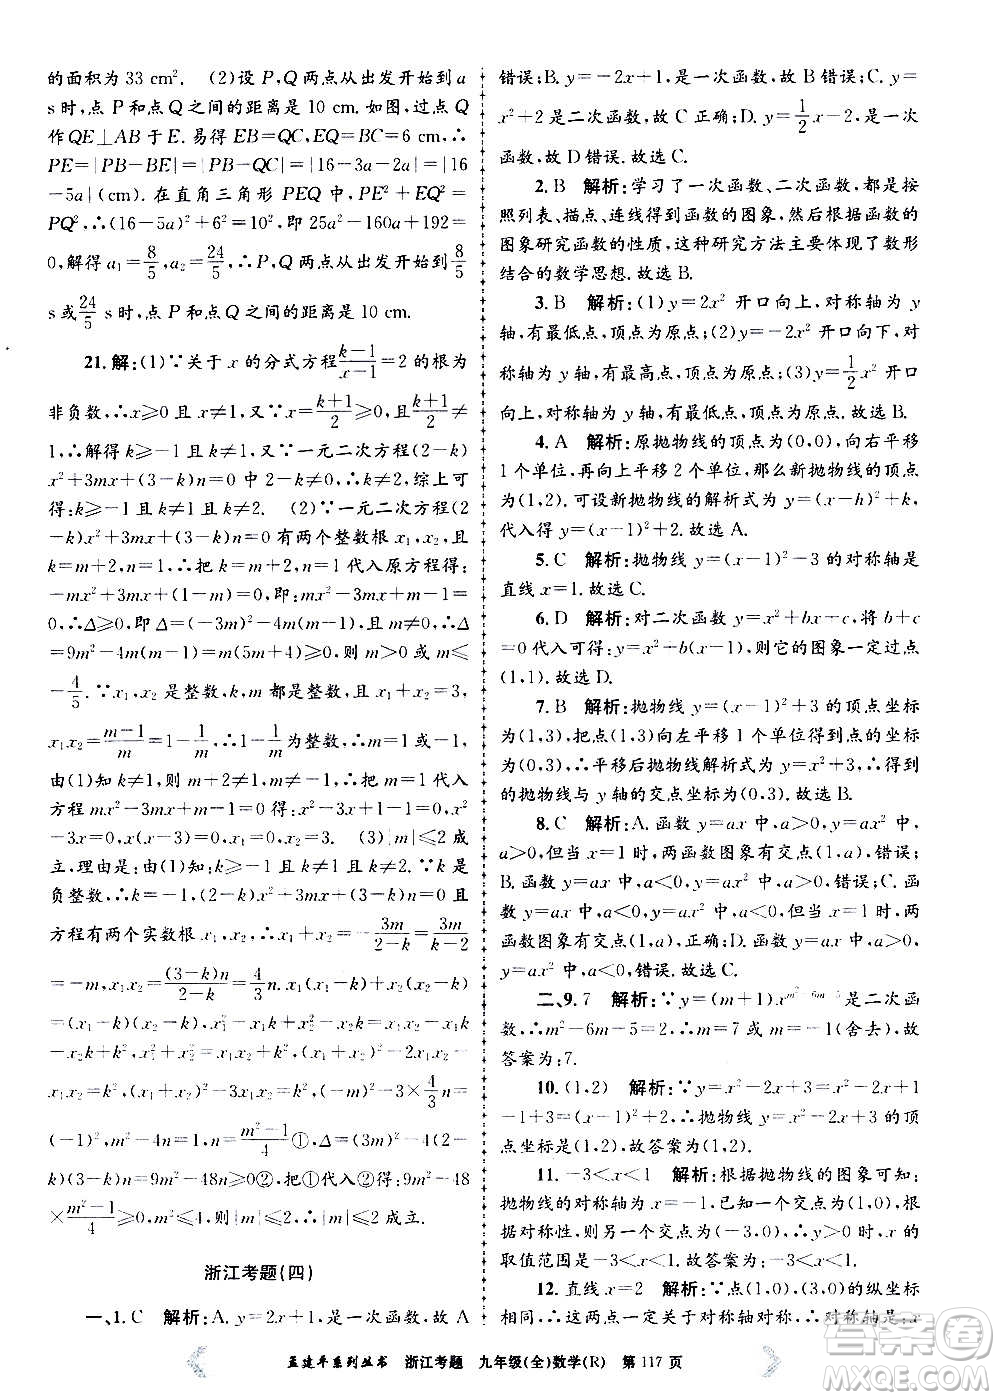 的面积为 33 cm². (2)设 P,Q 两点从出发开始到 a
s时,点 P 和点 Q 之间的距离是 10 cm. 如图,过点 Q
作 QE⊥AB 于 E. 易得 EB=QC,EQ=BC=6 cm,∴
PE=|PB-BE|=|PB-QC|=|16-3a-2a|=|16
-5a|(cm). 在直角三角形 PEQ 中,PE²+EQ²=
PQ²,∴(16-5a)²+6²=10²,即 25a²-160a+192=
0,解得 a₁=8/5,a₂=24/5,∴P,Q 两点从出发开始到 8/5
s 或 24/5 s时,点 P 和点 Q 之间的距离是 10 cm.
21. 解:(1)∵关于 x 的分式方程 (k-1)/(x-1)=2 的根为
非负数,∴x≥0 且 x≠1,又∵x=(k+1)/2≥0,且 (k+1)/2≠
1,∴解得 k≥-1 且 k≠1,又∵一元二次方程(2-k)
x²+3mx+(3-k)n=0 中 2-k≠0,∴k≠2,综上可
得:k≥-1 且 k≠1 且 k≠2. (2)∵一元二次方程(2
-k)x²+3mx+(3-k)n=0 有两个整数根 x₁,x₂,且
k=m+2,n=1 时,∴把 k=m+2,n=1 代入原方程得:
-mx²+3mx+(1-m)=0,即:mx²-3mx+m-1=
0,∴Δ≥0,即 Δ=(-3m)²-4m(m-1),且 m≠0,∴Δ
=9m²-4m(m-1)=m(5m+4)≥0,则 m>0 或 m≤
-4/5. ∵x₁,x₂ 是整数,k,m 都是整数,∵x₁+x₂=3,
x₁x₂=(m-1)/m=1-1/m,∴1-1/m 为整数,∴m=1 或-1,
由(1)知 k≠1,则 m+2≠1,m≠-1,∴把 m=1 代入
方程 mx²-3mx+m-1=0 得:x²-3x+1-1=0,x²
-3x=0,x(x-3)=0,x₁=0,x₂=3. (3)|m|≤2 成
立,理由是:由(1)知:k≥-1 且 k≠1 且 k≠2,∵k 是
负整数,∴k=-1,(2-k)x²+3mx+(3-k)n=0 且
方程有两个实数根 x₁,x₂,∴x₁+x₂=-3m/(2-k)=3m/(k-2)
=-m,x₁x₂=(3-k)n/(2-k)=4/3n. x₁(x₁-k)+x₂(x₂-k)
=(x₁-k)(x₂-k),x₁²-x₁k+x₂²-x₂k=x₁x₂-x₁k-
x₂k+k²,x₁²+x₂²=x₁x₂+k²,(x₁+x₂)²-2x₁x₂-
x₁x₂=k²,(x₁+x₂)²-3x₁x₂=k²,(-m)²-3×4/3n=
(-1)²,m²-4n=1,n=(m²-1)/4①,Δ=(3m)²-4(2-
k)(3-k)n=9m²-48n≥0②,把①代入②得:9m²-48
×(m²-1)/4≥0,m²≤4,则|m|≤2,∴|m|≤2 成立.
浙江考题(四)
一、1. C 解析:A. y=2x+1,是一次函数,故 A
错误;B. y=-2x+1,是一次函数,故 B 错误;C. y=
x²+2 是二次函数,故 C 正确;D. y=1/2x-2,是一次
函数,故 D 错误. 故选 C.
2. B 解析:学习了一次函数、二次函数,都是按
照列表、描点、连线得到函数的图象,然后根据函数的
图象研究函数的性质,这种研究方法主要体现了数形
结合的数学思想. 故选 B.
3. B 解析:(1)y=2x² 开口向上,对称轴为 y
轴,有最低点,顶点为原点;(2)y=-2x² 开口向下,对
称轴为 y 轴,有最高点,顶点为原点;(3)y=1/2x² 开口
向上,对称轴为 y 轴,有最低点,顶点为原点. 故选 B.
4. A 解析:原抛物线的顶点为(0,0),向右平移
1 个单位,再向上平移 2 个单位,那么新抛物线的顶点
为(1,2). 可设新抛物线的解析式为 y=(x-h)²+k,
代入得 y=(x-1)²+2. 故选 A.
5. C 解析:抛物线 y=(x-1)²-3 的对称轴是
直线 x=1. 故选 C.
6. D 解析:对二次函数 y=x²+bx-c,将 b+c
=0 代入可得:y=x²+b(x+1),则它的图象一定过点
(1,1). 故选 D.
7. B 解析:抛物线 y=(x-1)²+3 的顶点坐标
为(1,3),把点(1,3)向左平移 1 个单位得到点的坐标
为(0,3),∴平移后抛物线解析式为 y=x²+3,∴得到
的抛物线与 y 轴的交点坐标为(0,3). 故选 B.
8. C 解析:A. 函数 y=ax 中,a>0,y=ax² 中,
a>0,但当 x=1 时,两函数图象有交点(1,a),错误;
B. 函数 y=ax 中,a<0,y=ax² 中,a>0,错误;C. 函
数 y=ax 中,a<0,y=ax² 中,a<0,但当 x=1 时,两
函数图象有交点(1,a),正确;D. 函数 y=ax 中,a>
0,y=ax² 中,a<0,错误. 故选 C.
二、9. 7 解析:∵y=(m+1)x^(m²-6m-5) 是二次函
数,∴m²-6m-5=2,∴m=7 或 m=-1(舍去). 故
答案为:7.
10. (1,2) 解析:∵y=x²-2x+3=x²-2x+1
-1+3=(x-1)²+2,∴抛物线 y=x²-2x+3 的顶
点坐标是(1,2). 故答案为(1,2).
11. -3<x<1 解析:根据抛物线的图象可知:
抛物线的对称轴为 x=-1,已知一个交点为(1,0),
根据对称性,则另一个交点为(-3,0),∴y>0 时,x 的
取值范围是-3<x<1. 故答案为:-3<x<1.
12. 直线 x=2 解析:∵点(1,0),(3,0)的纵坐标
相同,∴这两点一定关于对称轴对称,∴对称轴是:x
孟建平系列丛书 浙江考题 九年级(全)数学(R) 第 117 页